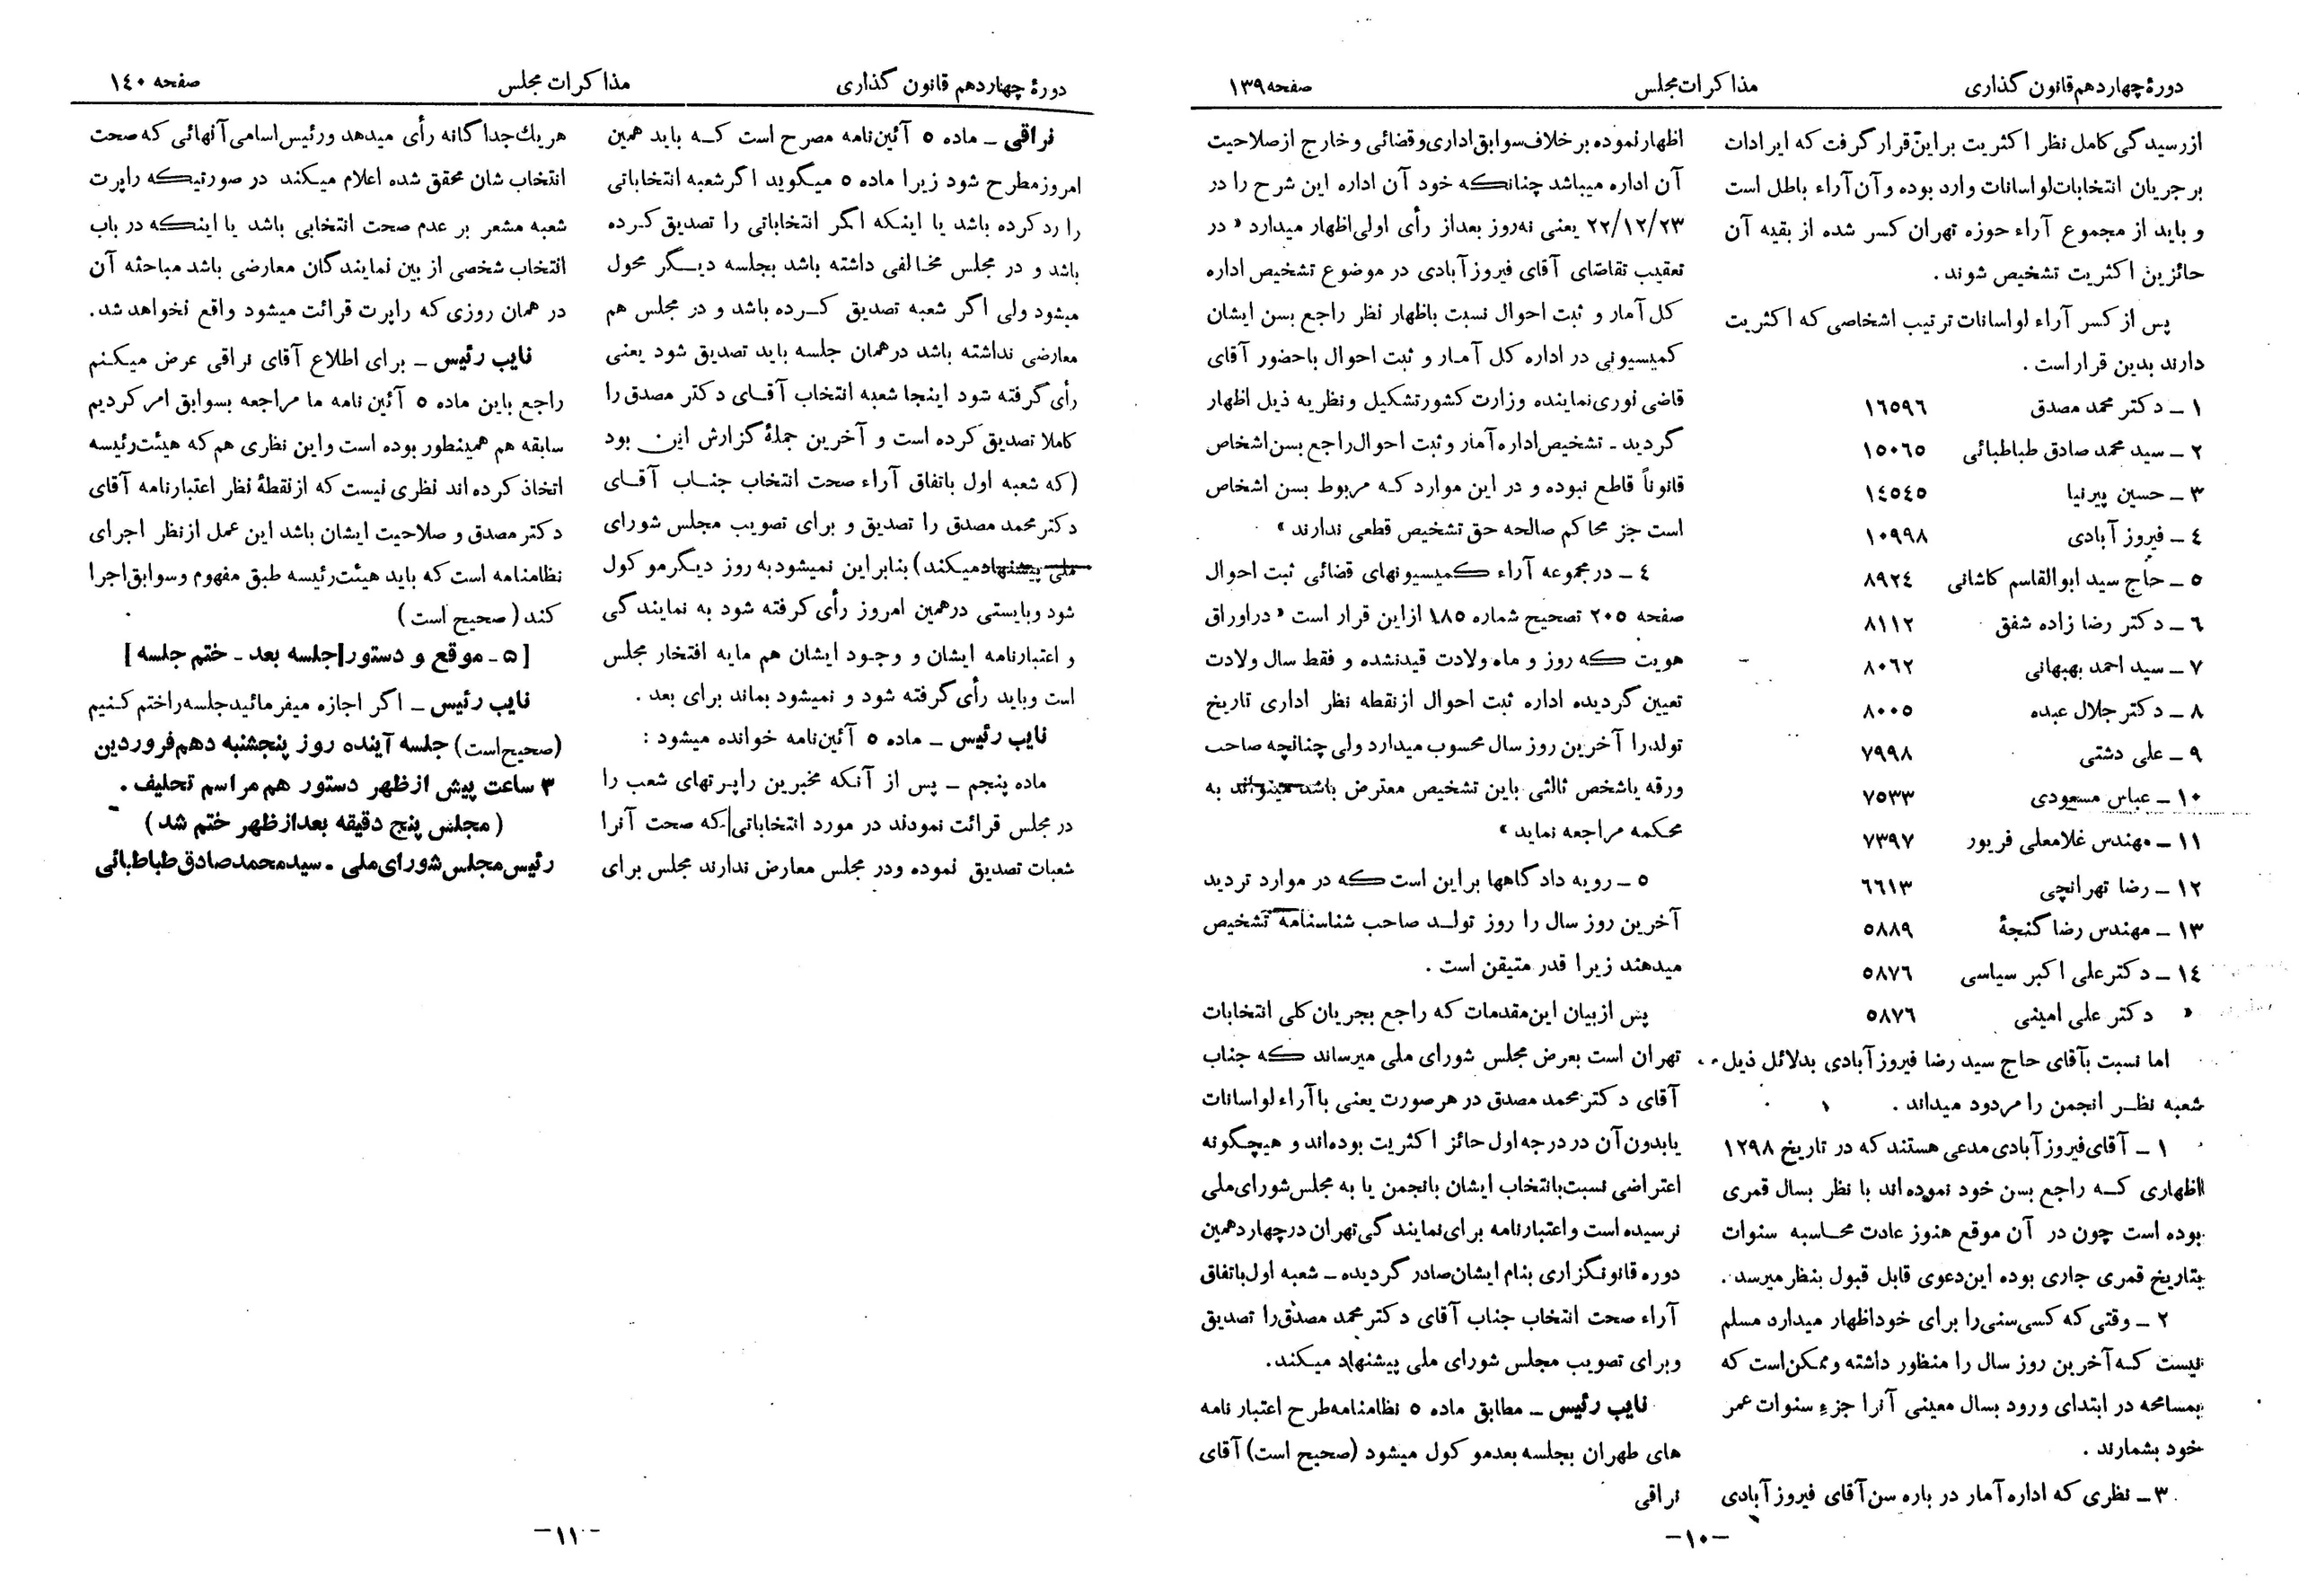 دورۀ چهاردهم قانون گذاری
مذاکرات مجلس
صفحه ۱۳۹
از رسیدگی کامل نظر اکثریت براین قرار گرفت که ایرادات
بر جریان انتخابات لواسانات وارد بوده و آن آراء باطل است
و باید از مجموع آراء حوزه تهران کسر شده از بقیه آن
حائزین اکثریت تشخیص شوند .
پس از کسر آراء لواسانات ترتیب اشخاصی که اکثریت
دارند بدین قرار است .
۱ ـ دکتر محمد مصدق ۱٦٥۹٦
۲ ـ سید محمد صادق طباطبائی ۱٥۰٦٥
۳ ـ حسین پیرنیا ۱٤٥٤٥
٤ ـ فیروز آبادی ۱۰۹۹۸
٥ ـ حاج سید ابوالقاسم کاشانی ۸۹۲٤
٦ ـ دکتر رضا زاده شفق ۸۱۱۲
۷ ـ سید احمد بهبهانی ۸۰٦۲
۸ ـ دکتر جلال عبده ۸۰۰٥
۹ ـ علی دشتی ۷۹۹۸
۱۰ ـ عباس مسعودی ۷٥۳۳
۱۱ ـ مهندس غلامعلی فریور ۷۳۹۷
۱۲ ـ رضا تهرانچی ٦٦۱۳
۱۳ ـ مهندس رضا گنجۀ ٥۸۸۹
۱٤ ـ دکتر علی اکبر سیاسی ٥۸۷٦
« دکتر علی امینی ٥۸۷٦
اما نسبت بآقای حاج سید رضا فیروز آبادی بدلائل ذیل
شعبه نظر انجمن را مردود میداند .
۱ ـ آقای فیروز آبادی مدعی هستند که در تاریخ ۱۲۹۸
اظهاری که راجع بسن خود نموده اند با نظر بسال قمری
بوده است چون در آن موقع هنوز عادت محاسبه سنوات
بتاریخ قمری جاری بوده این دعوی قابل قبول بنظر میرسد .
۲ ـ وقتی که کسی سنی را برای خود اظهار میدارد مسلم
نیست که آخرین روز سال را منظور داشته و ممکن است که
بمسامحه در ابتدای ورود بسال معینی آنرا جزء سنوات عمر
خود بشمارند .
۳ ـ نظری که اداره آمار در باره سن آقای فیروز آبادی
اظهار نموده برخلاف سوابق اداری و قضائی و خارج از صلاحیت
آن اداره میباشد چنانکه خود آن اداره این شرح را در
۲۲/۱۲/۲۳ یعنی نه روز بعد از رأی اولی اظهار میدارد « در
تعقیب تقاضای آقای فیروز آبادی در موضوع تشخیص اداره
کل آمار و ثبت احوال نسبت باظهار نظر راجع بسن ایشان
کمیسیونی در اداره کل آمار و ثبت احوال با حضور آقای
قاضی نوری نماینده وزارت کشور تشکیل و نظریه ذیل اظهار
گردید ـ تشخیص اداره آمار و ثبت احوال راجع بسن اشخاص
قانوناً قاطع نبوده و در این موارد که مربوط بسن اشخاص
است جز محاکم صالحه حق تشخیص قطعی ندارند »
٤ ـ در مجموعه آراء کمیسیونهای قضائی ثبت احوال
صفحه ۲۰٥ تصحیح شماره ۱۸٥ از این قرار است « در اوراق
هویت که روز و ماه ولادت قید نشده و فقط سال ولادت
تعیین گردیده اداره ثبت احوال از نقطه نظر اداری تاریخ
تولد را آخرین روز سال محسوب میدارد ولی چنانچه صاحب
ورقه یا شخص ثالثی باین تشخیص معترض باشد میتواند به
محکمه مراجعه نماید »
٥ ـ رویه دادگاهها براین است که در موارد تردید
آخرین روز سال را روز تولد صاحب شناسنامه تشخیص
میدهند زیرا قدر متیقن است .
پس از بیان این مقدمات که راجع بجریان کلی انتخابات
تهران است بعرض مجلس شورای ملی میرساند که جناب
آقای دکتر محمد مصدق در هر صورت یعنی با آراء لواسانات
یا بدون آن در درجه اول حائز اکثریت بوده اند و هیچگونه
اعتراضی نسبت بانتخاب ایشان بانجمن یا به مجلس شورای ملی
نرسیده است و اعتبارنامه برای نمایندگی تهران در چهاردهمین
دوره قانونگزاری بنام ایشان صادر گردیده ـ شعبه اول باتفاق
آراء صحت انتخاب جناب آقای دکتر محمد مصدق را تصدیق
و برای تصویب مجلس شورای ملی پیشنهاد میکند .
نایب رئیس ـ مطابق ماده ٥ نظامنامه طرح اعتبار نامه
های طهران بجلسه بعد موکول میشود (صحیح است) آقای
نراقی
ـ۱۰ـ
دورۀ چهاردهم قانون گذاری
مذاکرات مجلس
صفحه ۱٤۰
نراقی ـ ماده ٥ آئین نامه مصرح است که باید همین
امروز مطرح شود زیرا ماده ٥ میگوید اگر شعبه انتخاباتی
را رد کرده باشد یا اینکه اگر انتخاباتی را تصدیق کرده
باشد و در مجلس مخالفی داشته باشد بجلسه دیگر محول
میشود ولی اگر شعبه تصدیق کرده باشد و در مجلس هم
معارضی نداشته باشد در همان جلسه باید تصدیق شود یعنی
رأی گرفته شود اینجا شعبه انتخاب آقای دکتر مصدق را
کاملا تصدیق کرده است و آخرین جملۀ گزارش این بود
(که شعبه اول باتفاق آراء صحت انتخاب جناب آقای
دکتر محمد مصدق را تصدیق و برای تصویب مجلس شورای
ملی پیشنهاد میکند) بنابر این نمیشود به روز دیگر موکول
شود و بایستی در همین امروز رأی گرفته شود به نمایندگی
و اعتبارنامه ایشان و وجود ایشان هم مایه افتخار مجلس
است و باید رأی گرفته شود و نمیشود بماند برای بعد .
نایب رئیس ـ ماده ٥ آئین نامه خوانده میشود :
ماده پنجم ـ پس از آنکه مخبرین راپرتهای شعب را
در مجلس قرائت نمودند در مورد انتخاباتی که صحت آنرا
شعبات تصدیق نموده و در مجلس معارض ندارند مجلس برای
هر یك جداگانه رأی میدهد و رئیس اسامی آنهائی که صحت
انتخاب شان محقق شده اعلام میکند در صورتیکه راپرت
شعبه مشعر بر عدم صحت انتخابی باشد یا اینکه در باب
انتخاب شخصی از بین نمایندگان معارضی باشد مباحثه آن
در همان روزی که راپرت قرائت میشود واقع نخواهد شد .
نایب رئیس ـ برای اطلاع آقای نراقی عرض میکنم
راجع باین ماده ٥ آئین نامه ما مراجعه بسوابق امر کردیم
سابقه هم همینطور بوده است و این نظری هم که هیئت رئیسه
اتخاذ کرده اند نظری نیست که از نقطۀ نظر اعتبارنامه آقای
دکتر مصدق و صلاحیت ایشان باشد این عمل از نظر اجرای
نظامنامه است که باید هیئت رئیسه طبق مفهوم و سوابق اجرا
کند (صحیح است)
[ ۵ ـ موقع و دستور جلسه بعد ـ ختم جلسه ]
نایب رئیس ـ اگر اجازه میفرمائید جلسه را ختم کنیم
(صحیح است) جلسه آینده روز پنجشنبه دهم فروردین
۳ ساعت پیش از ظهر دستور هم مراسم تحلیف .
(مجلس پنج دقیقه بعد از ظهر ختم شد)
رئیس مجلس شورای ملی ـ سید محمد صادق طباطبائی
ـ۱۱ـ